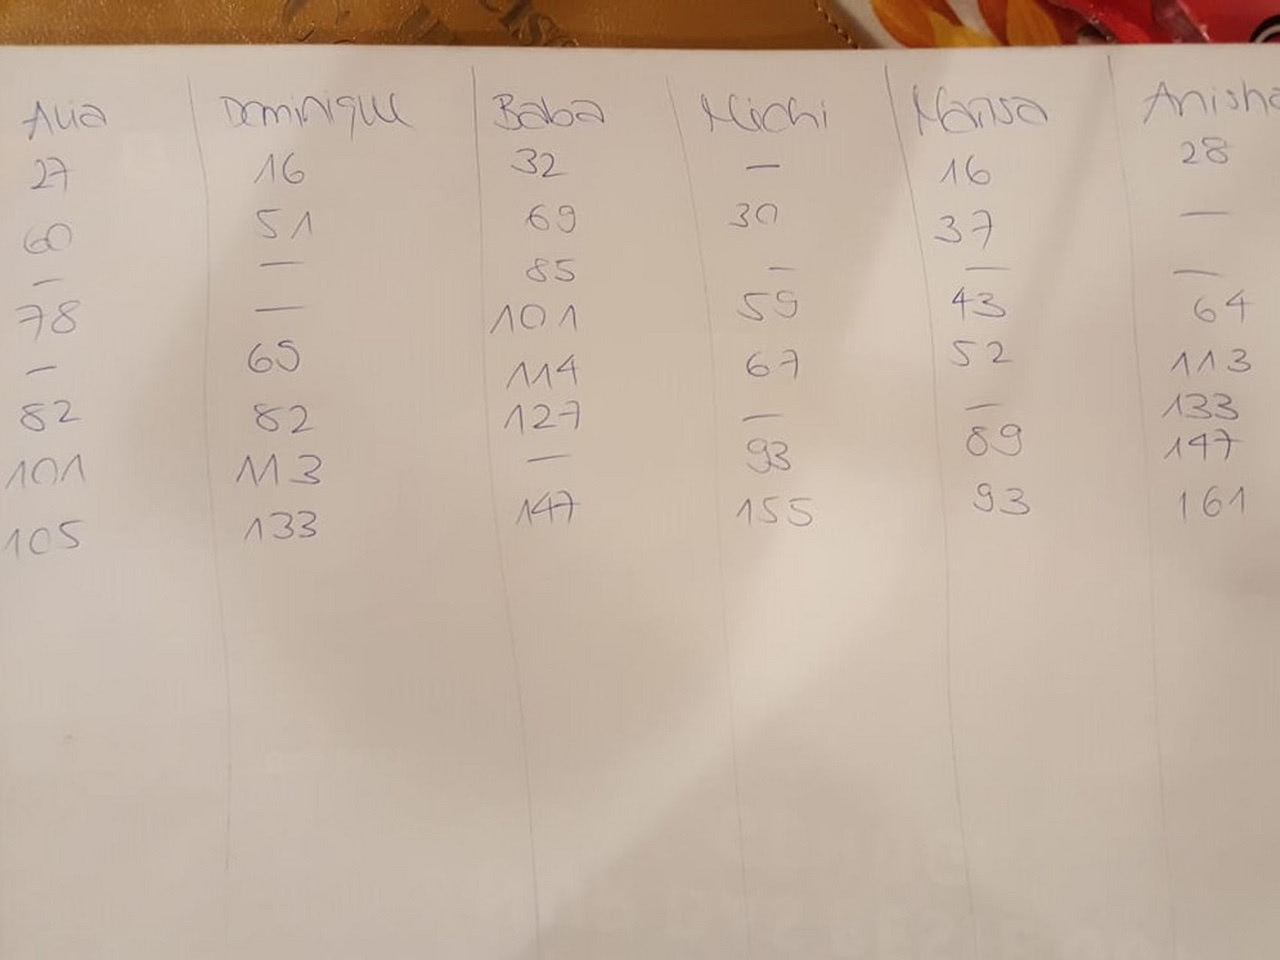 Alia Dominique Baba Michi Marisa Anisha
27 16 32 — 16 28
60 51 69 30 37 —
— — 85 — — —
78 — 101 59 43 64
— 65 114 67 52 113
82 82 127 — — 133
101 113 — 93 89 147
105 133 147 155 93 161